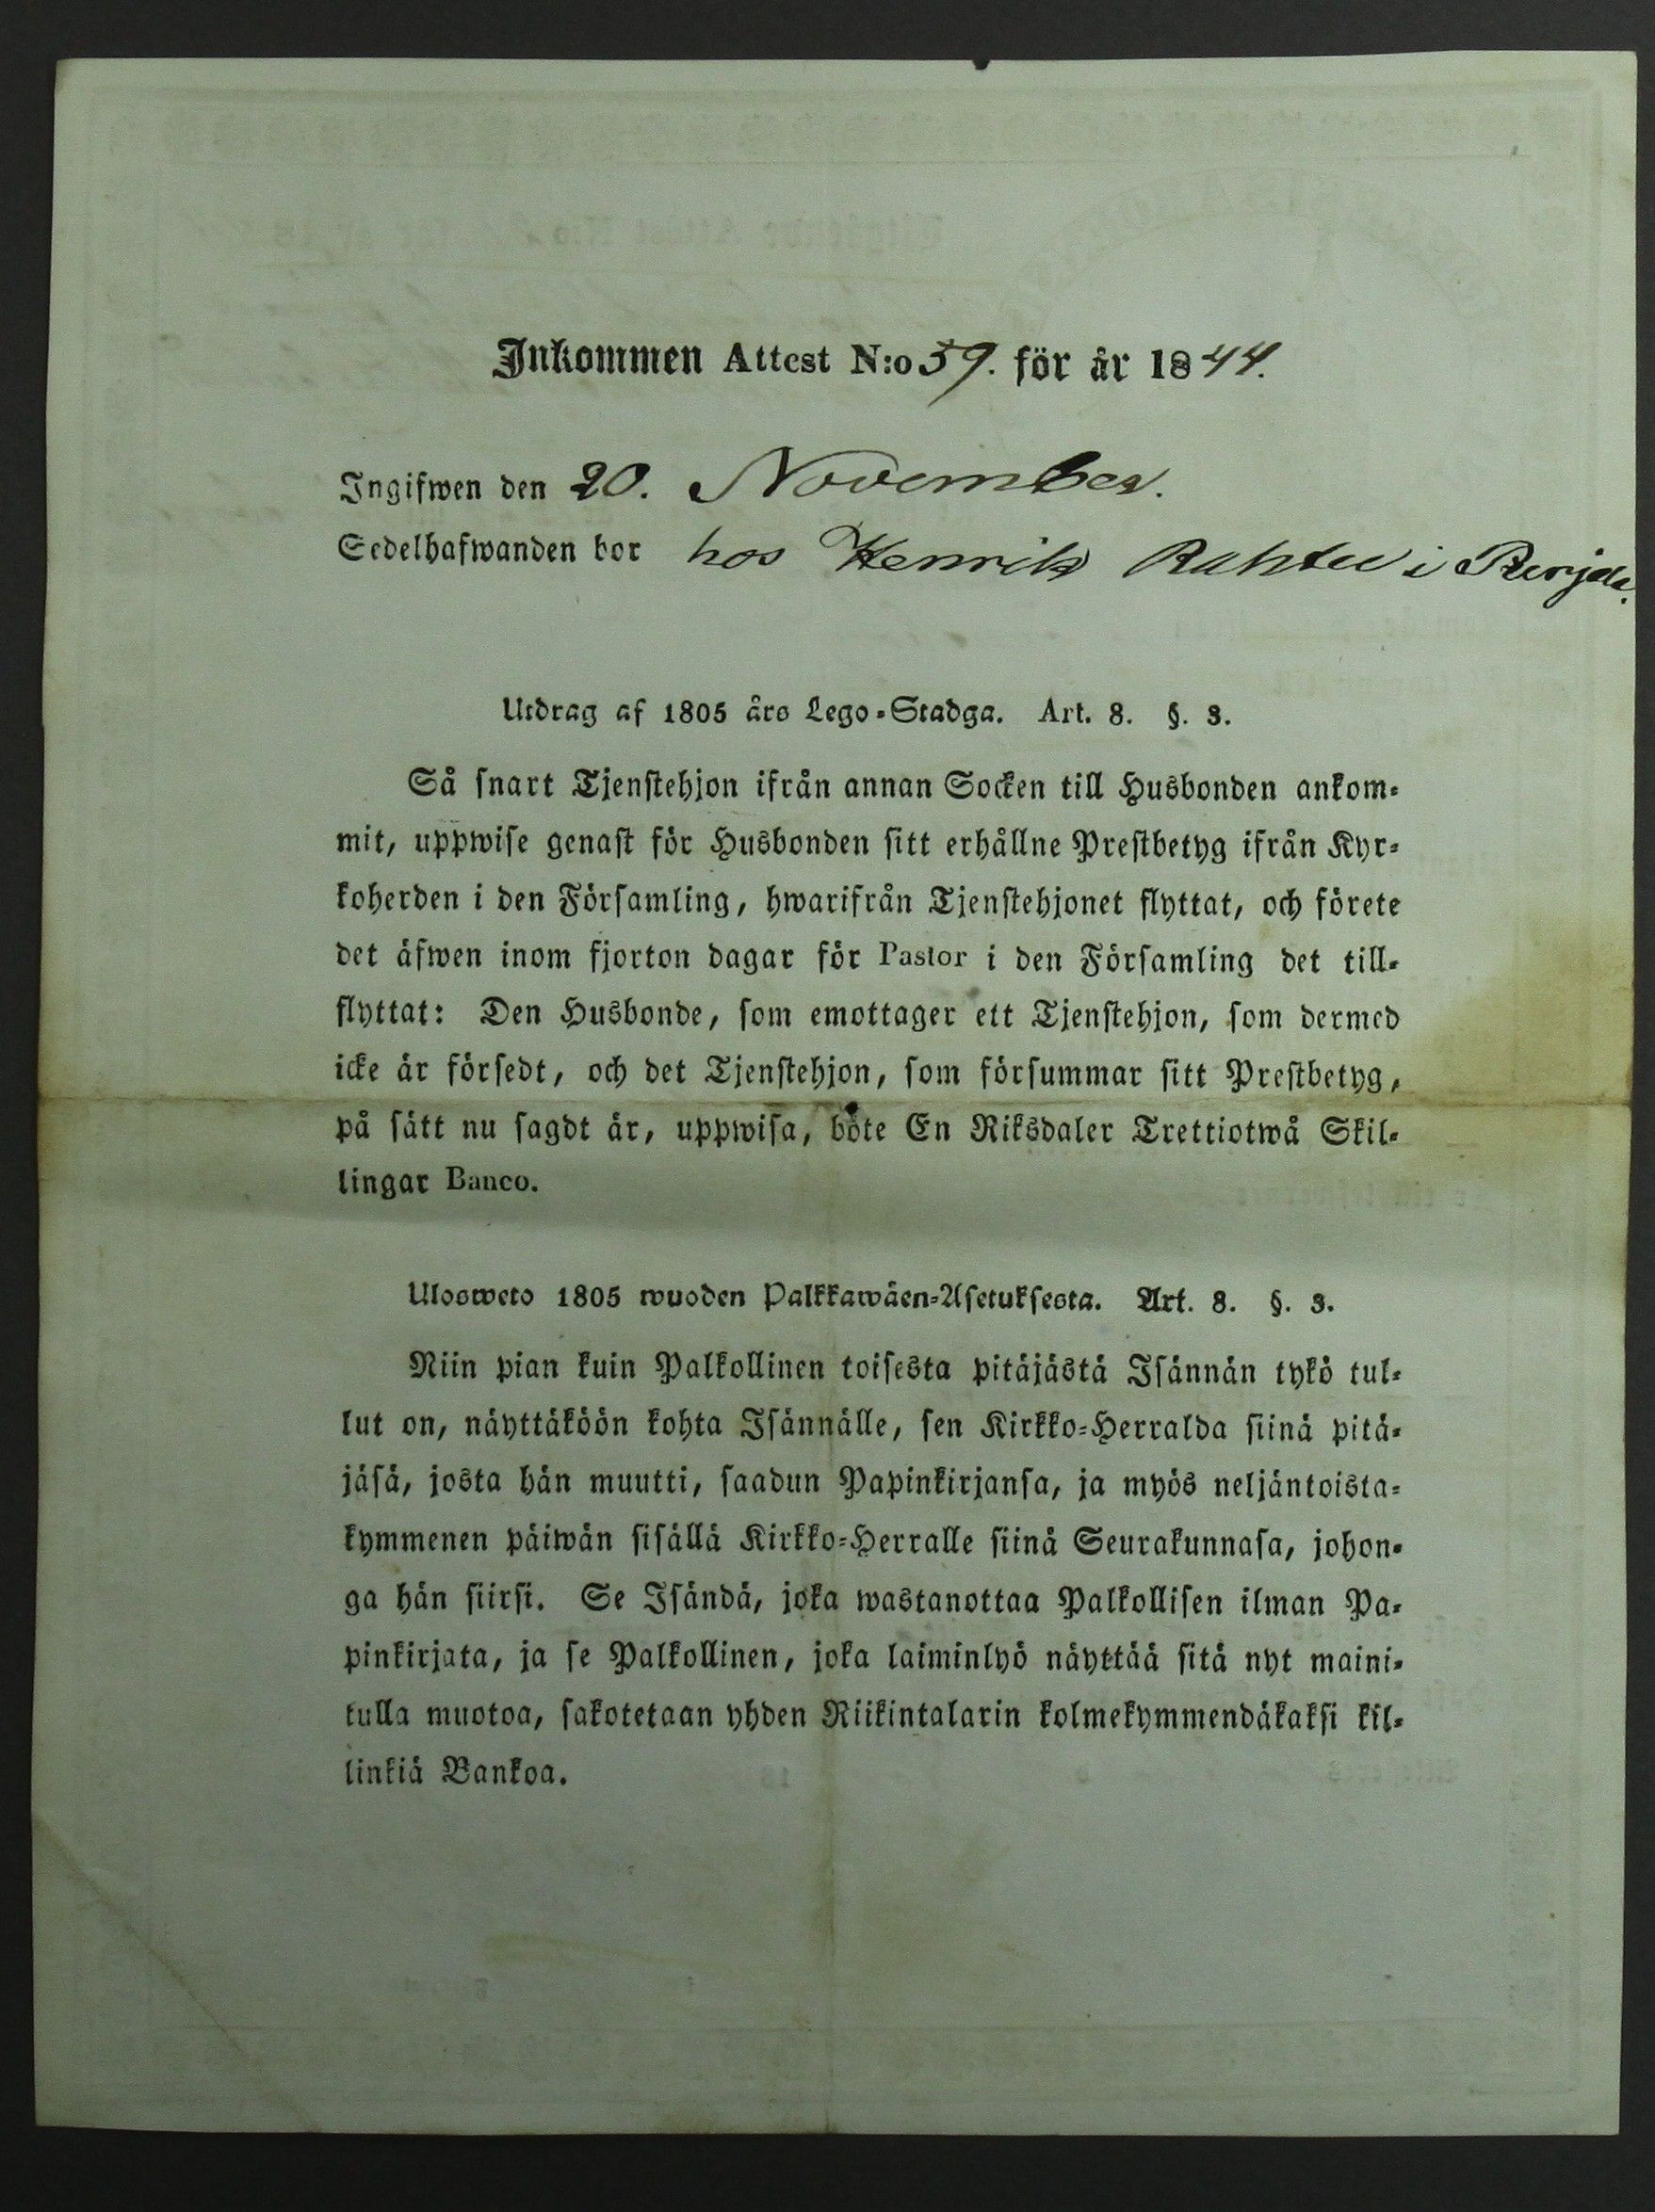 Inkommen Attest N:o 59. för år 1844.
Ingifwen den 20. November.
Sedelhafwanden bor hos Henrik Rahtu i
Utdrag af 1805 års Lego-Stadga. Art. 8. §. 3.
Så snart Tjenstehjon ifrån annan Socken till Husbonden ankom-
mit, uppwise genast för Husbonden sitt erhållne Prestbetyg ifrån Kyr-
koherden i den Församling, hwarifrån Tjenstehjonet flyttat, och förete
det äfwen inom fjorton dagar för Pastor i den Församling det till-
flyttat: Den Husbonde, som emottager ett Tjenstehjon, som dermed
icke är försedt, och det Tjenstehjon, som försummar sitt Prestbetyg,
på sätt nu sagdt är, uppwisa, böte En Riksdaler Trettiotwå Skil-
lingar Banco.
Ulosweto 1805 wuoden Palkkawäen-Asetuksesta. Art. 8. §. 3.
Niin pian kuin Palkollinen toisesta pitäjästä Isännän tykö tul-
lut on, näyttäköön kohta Isännälle, sen Kirkko-Herralda siinä pitä-
jäsä, josta hän muutti, saadun Papinkirjansa, ja myös neljäntoista-
kymmenen päiwän sisällä Kirkko-Herralle siinä Seurakunnasa, johon-
ga hän siirsi. Se Isändä, joka wastanottaa Palkollisen ilman Pa-
pinkirjata, ja se Palkollinen, joka laiminlyö näyttää sitä nyt maini-
tulla muotoa, sakotetaan yhden Riikintalarin kolmekymmendäkaksi kil-
linkiä Bankoa.